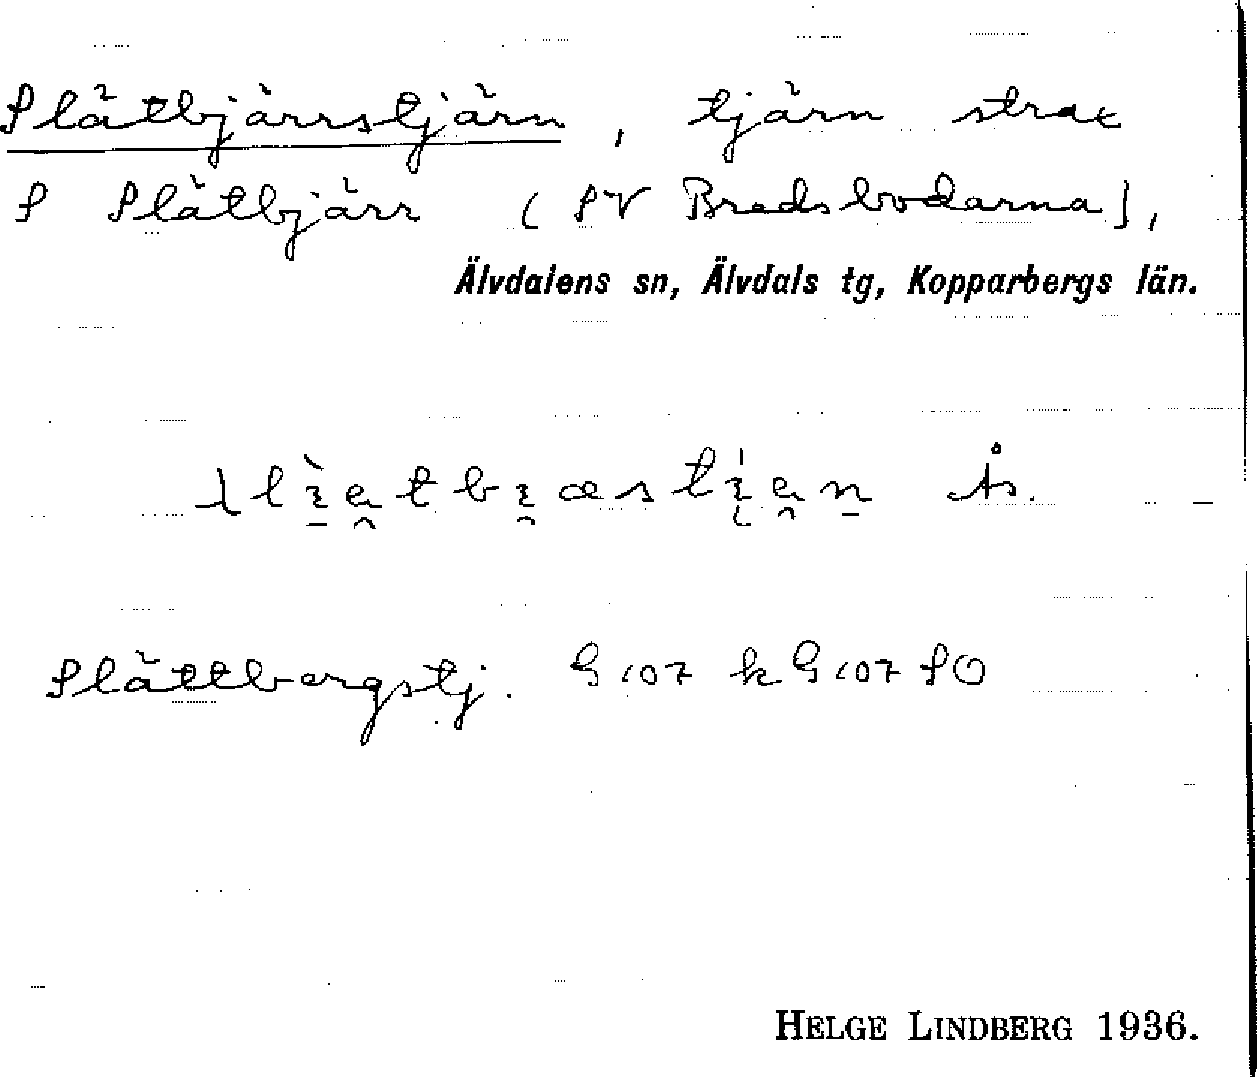 Slätbjärrstjärn, tjärn strax
S Slätbjärr (SV Bredsbodarna),
Älvdalens sn, Älvdals tg, Kopparbergs län.
Ås.
Slättbergstj. G 107 kG 107 SO
HELGE LINDBERG 1936.